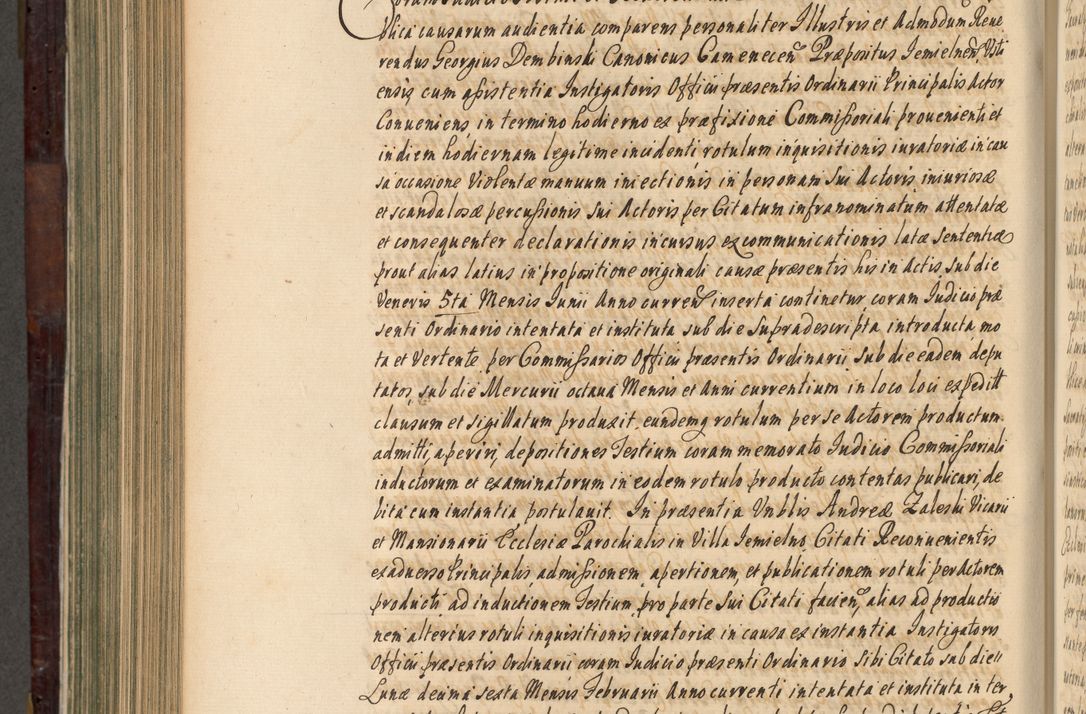 blica causarum audientia comparens personaliter Illustris et Admodum Reue
rendus Georgius Dembinski Canonicus Camenecen Præpositus Jemielnen, Vsti
ensis cum assistentia Instigatoris Officii præsentis Ordinarii Principalis Actor
Conueniens in termino hodierno ex præfixione Commissoriali prouenienti et
in diem hodiernam legitime incidenti rotulum inquisitionis iuratoriæ in cau
sa occasione Violentæ manuum iniectionis in personam Sui Actoris iniuriosæ
et scandalosæ percussionis Sui Actoris per Citatum infranominatum attentatæ
et consequenter declarationis incursus excommunicationis latæ Sententiæ
prout alias latius in propositione originali causæ præsentis his in Actis sub die
Veneris 5ta Mensis Iunii Anno curren inserta continetur coram Iudicio præ
senti Ordinario intentata et instituta sub die supradescripta introducta mo
ta et Vertente per Commissarios Officii præsentis Ordinarii sub die eadem depu
tatos, sub die Mercurii octaua Mensis et Anni currentium in loco loci expeditt
clausum et sigillatum produxit, eundemq rotulum per se Actorem productum
admitti, aperiri, depositiones Testium coram memorato Iudicio Commissoriali
inductorum et examinatorum in eodem rotulo producto contentas publicari, de
bita cum instantia postulauit. In præsentia Vnblis Andreæ Zaleski Vicarii
et Mansionarii Ecclesiæ Parochialis in Villa Jemielno Citati Reconuenientis
ex aduerso Principalis admissionem, apertionem, et publicationem rotuli per Actorem
producti ad inductionem Testium pro parte Sui Citati facien, alias ad productio
nem alterius rotuli inquisitionis iuratoriæ in causa ex instantia Instigatoris
Officii præsentis Ordinarii coram Iudicio præsenti Ordinario Sibi Citato sub die
Lunæ decima sexta Mensis Februarii Anno currenti intentata et instituta in ter,